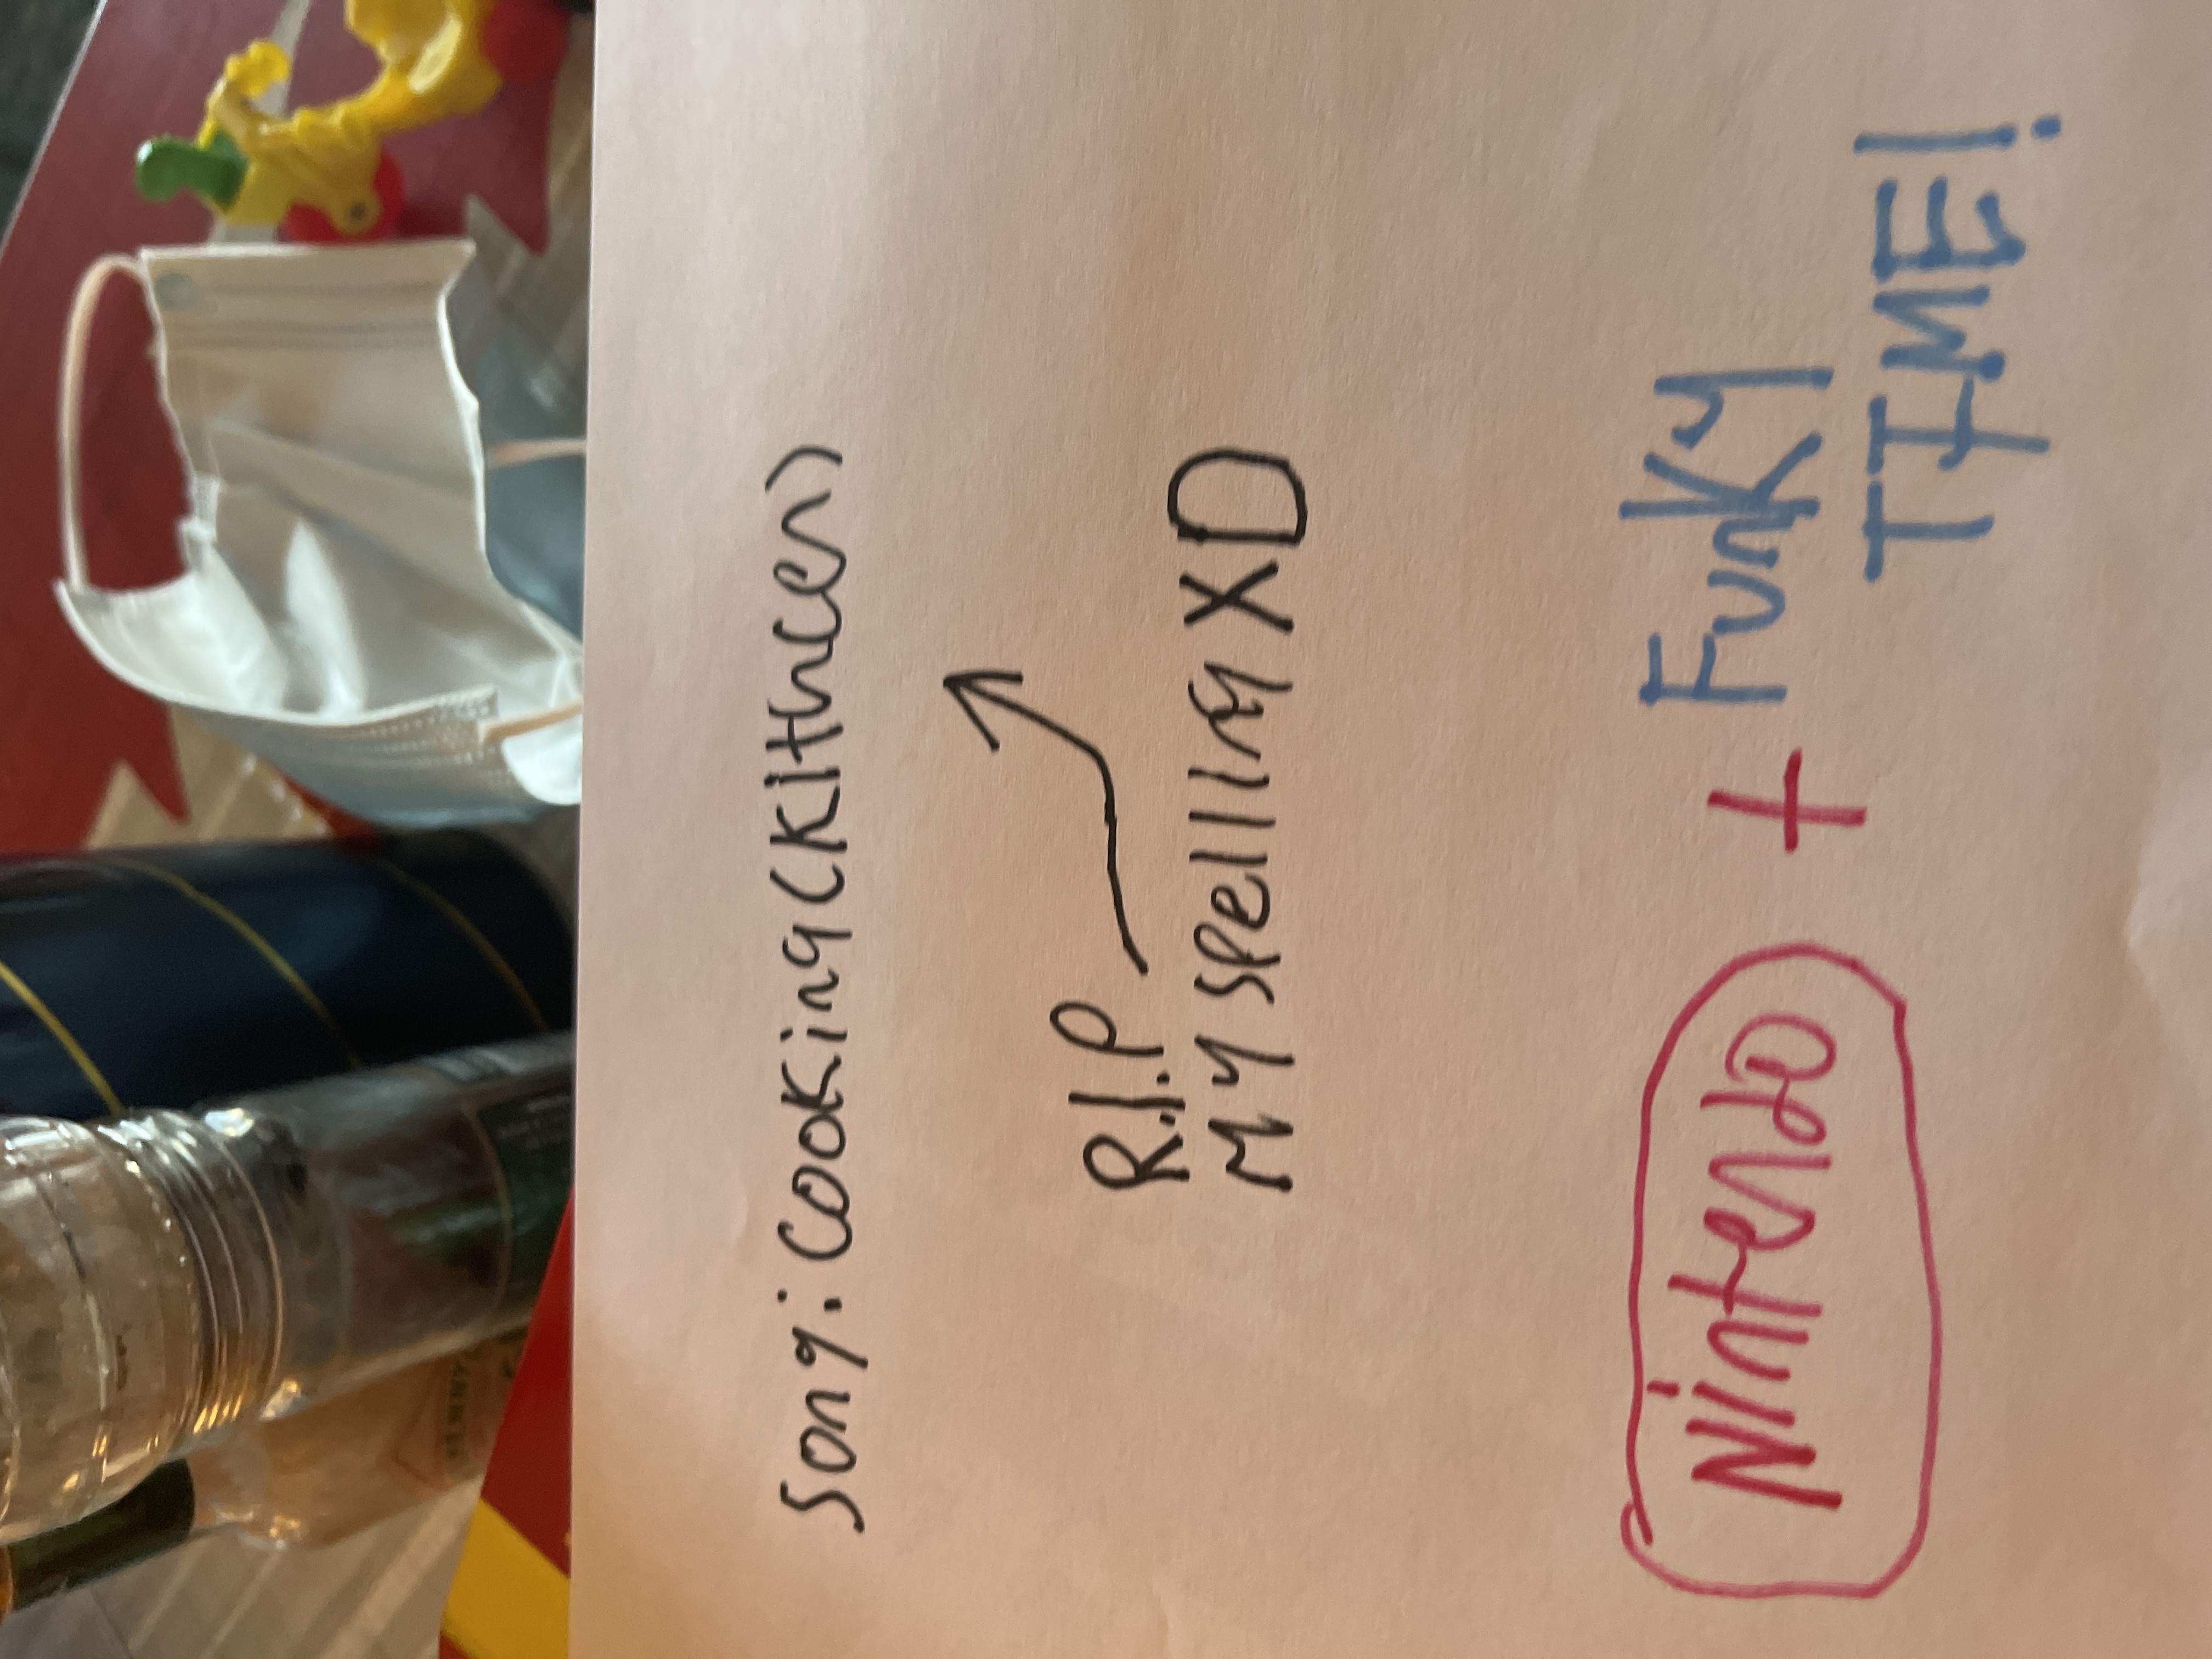 Song: Cooking (Kithcen)
R.I.P
My spelling XD
Nintendo + FunKY
TIME!